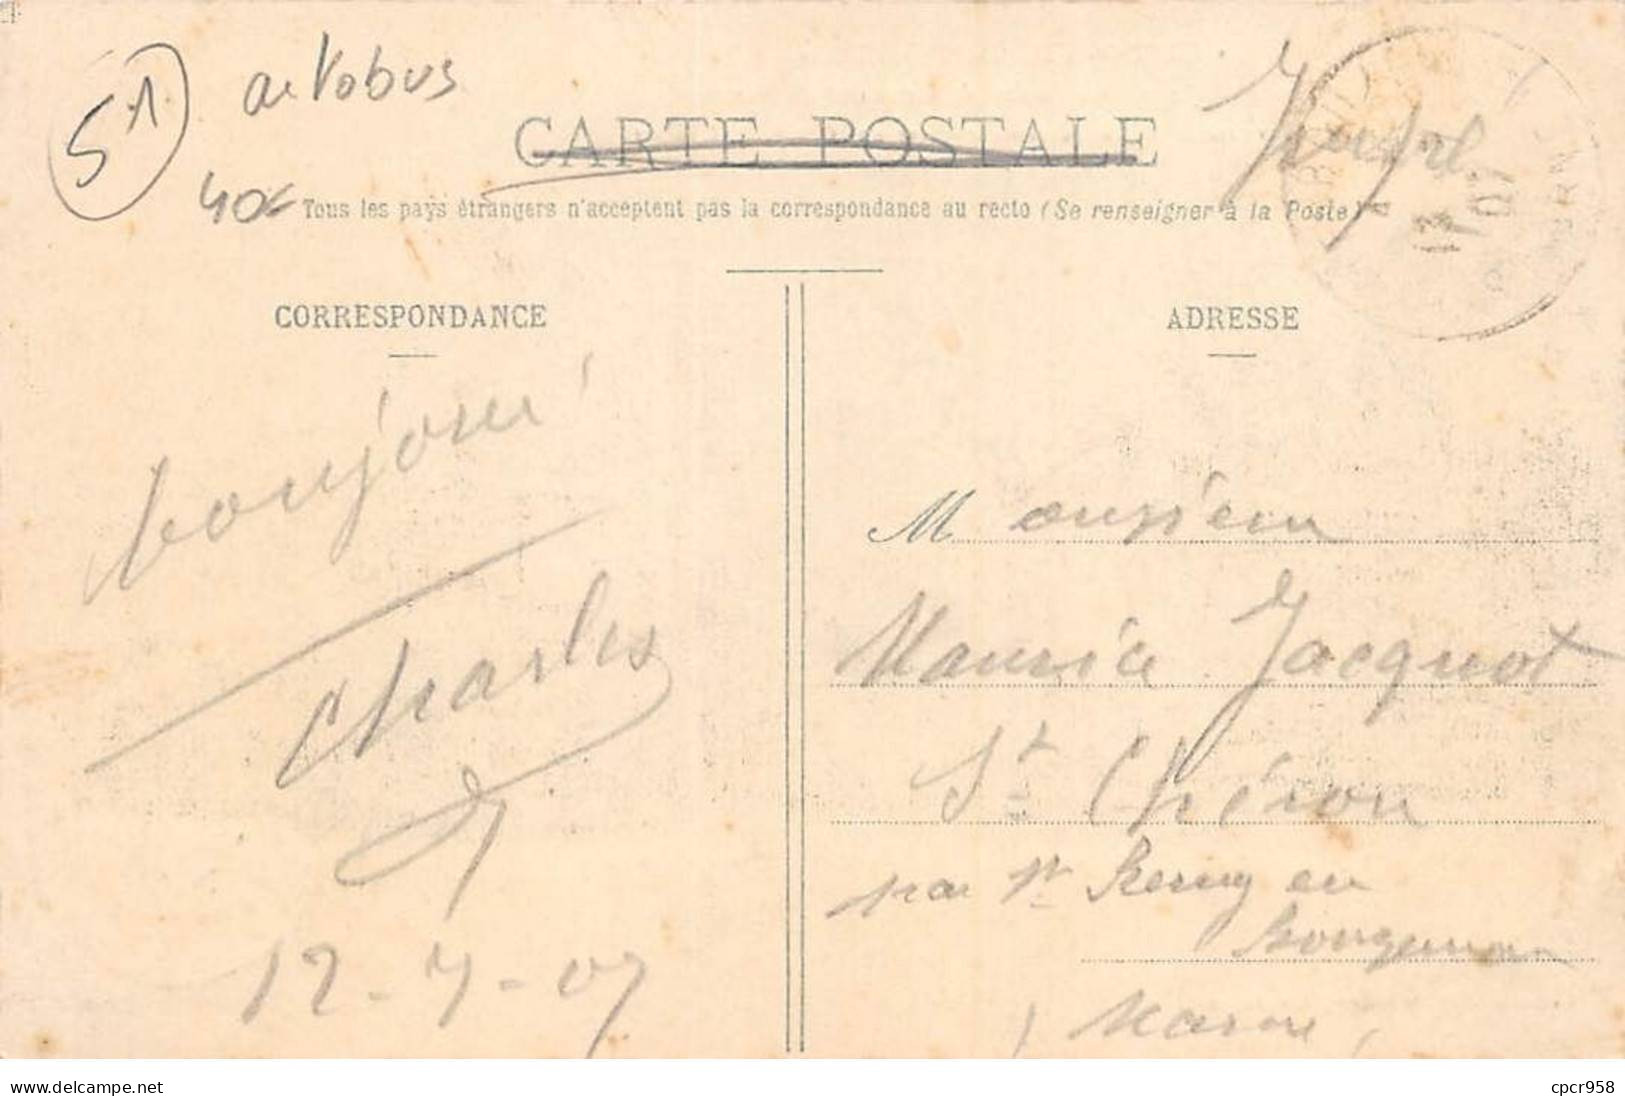 51
autobus
40€
CARTE POSTALE
Tous les pays étrangers n'acceptent pas la correspondance au recto (Se renseigner à la Poste)
13
07
CORRESPONDANCE
ADRESSE
bonjour
Charles
12-7-07
Monsieur
Maurice Jacquot
St Chéron
par St Remy en
Bouzemon
(Marne)
www.delcampe.net
cpcr958